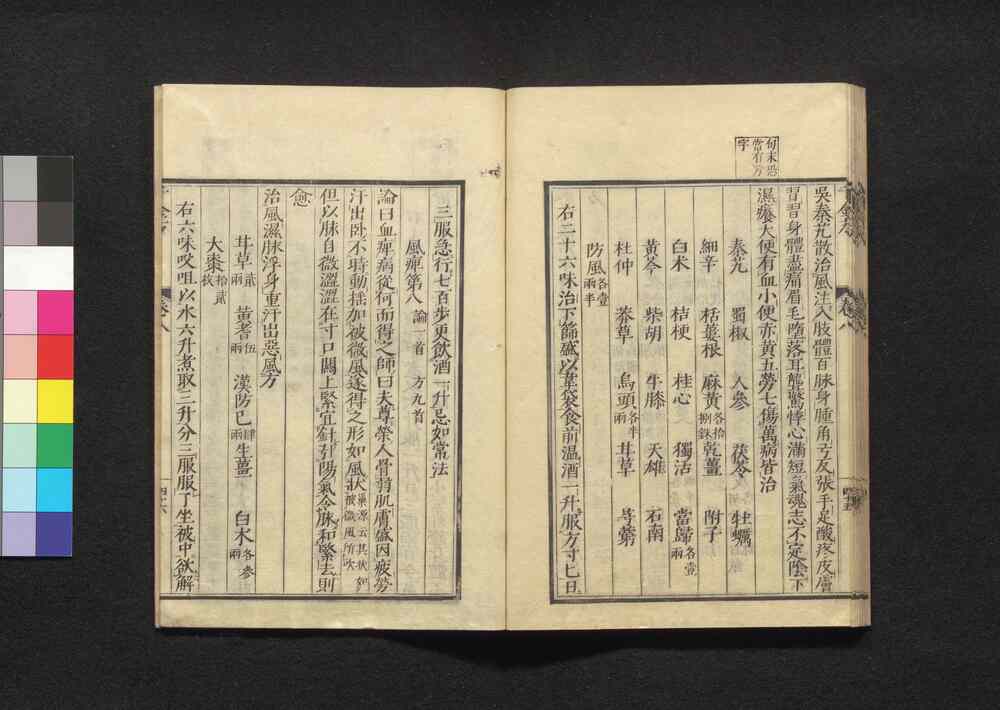 句末恐
當有方
字
吳秦艽散治風注入肢體百脉身腫角弓反張手足酸疼皮膚
習習身體盡痛眉毛墮落耳聾驚悸心滿短氣魂志不定陰下
濕癢大便有血小便赤黃五勞七傷萬病皆治
秦艽 蜀椒 人參 茯苓 牡蠣
細辛 栝蔞根 麻黃各拾捌銖 乾薑 附子
白朮 桔梗 桂心 獨活 當歸各壹兩
黃芩 柴胡 牛膝 天雄 石南
杜仲 莽草 烏頭各半兩 甘草 芎藭
防風各壹兩半
右二十六味治下篩盛以葦袋食前温酒一升服方寸七日
卷八
四十五
三服急行七百步更飲酒一升忌如常法
風痺第八 論一首 方九首
論曰血痺病從何而得之師曰夫尊榮人骨弱肌膚盛因疲勞
汗出卧不時動搖加被微風遂得之形如風狀巢源云其狀如被微風所吹
但以脉自微濇澀在寸口關上緊宜針引陽氣令脉和緊去則
愈
治風濕脉浮身重汗出惡風方
甘草貳兩 黃耆伍兩 漢防己肆兩 生薑 白朮各參兩
大棗拾貳枚
右六味㕮咀以水六升煮取三升分三服服了坐被中欲解
卷八
四十六